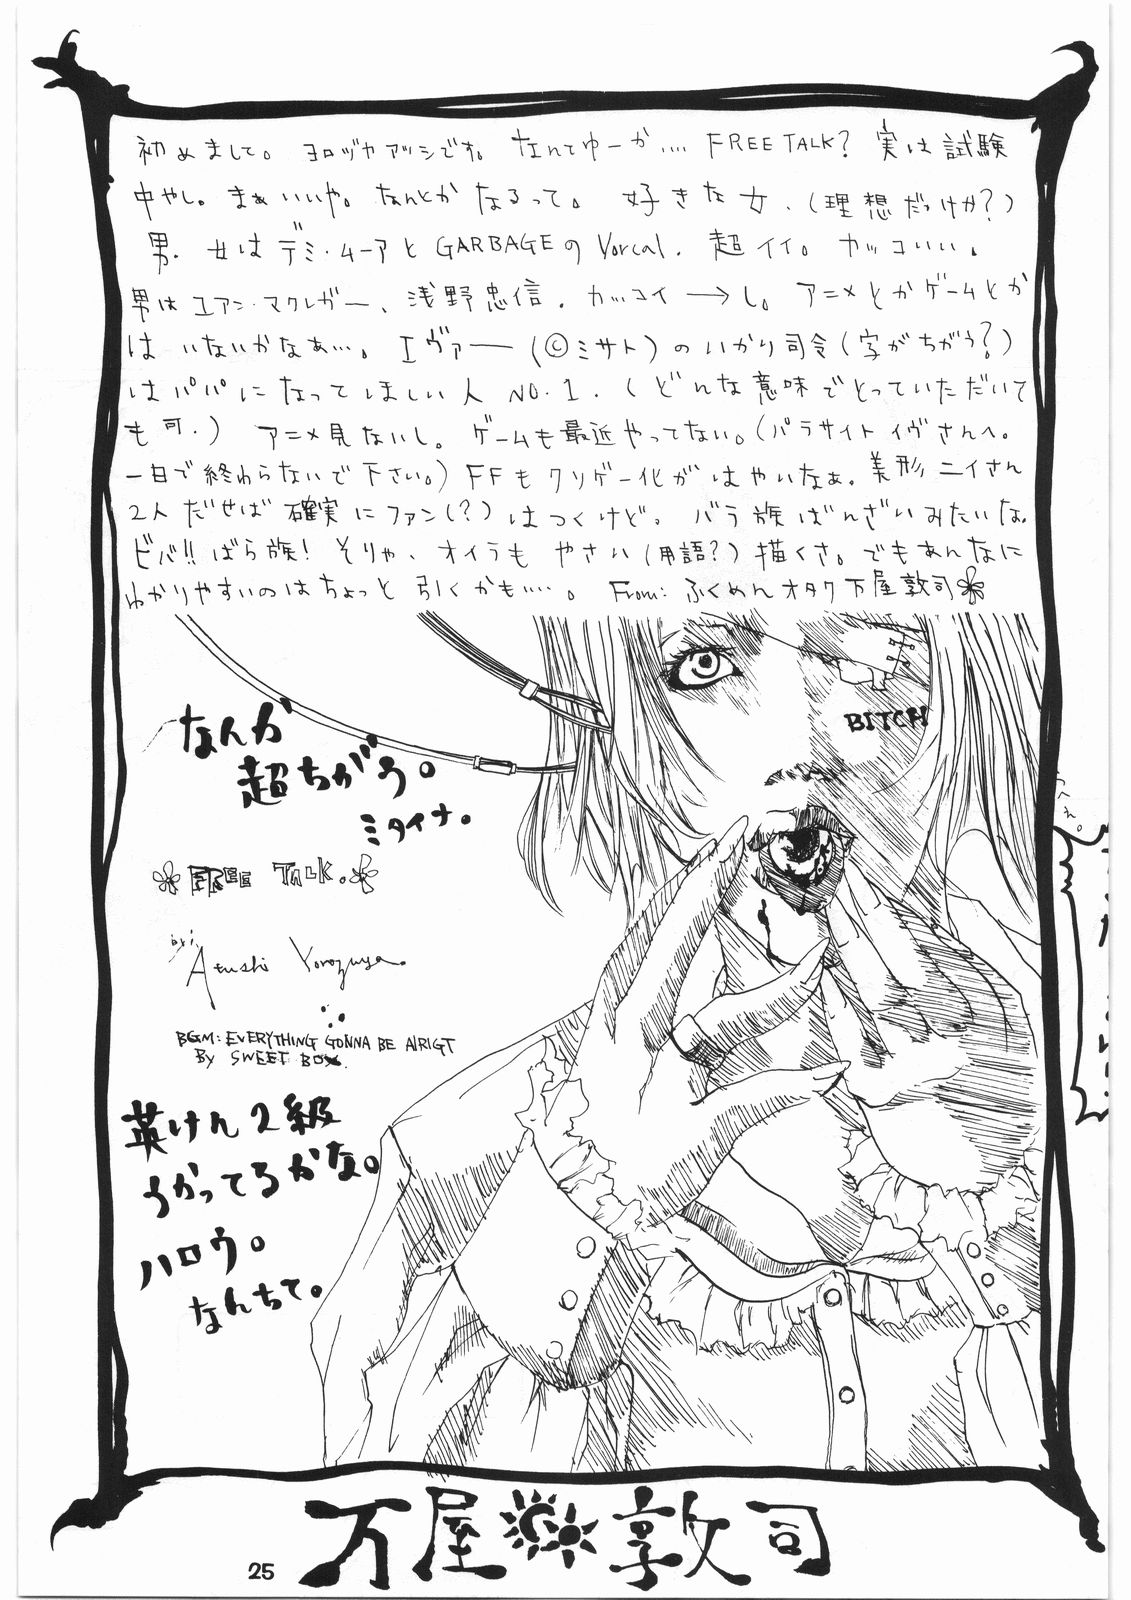 初めまして。ヨロヅヤアツシです。なんてゆーか.... FREE TALK? 実は試験
中やし。まぁいいや。なんとかなるって。好きな女、(理想だっけか?)
男. 女はデミ・ムーアとGARBAGEのVorcal. 超イイ。カッコいい。
男はユアン・マクレガー、浅野忠信. カッコイ→し。アニメとかゲームとか
はいないかなぁ…。エヴァー(©ミサト)のいかり司令(字がちがう?)
はパパになってほしい人 NO.1. (どんな意味でとっていただいて
も可.) アニメ見ないし。ゲームも最近やってない。(パラサイトイヴさんへ。
一日で終わらないで下さい。) FFもクソゲー化がはやいなぁ。美形ニイさん
2人だせば確実にファン(?)はつくけど。バラ族ばんざいみたいな。
ビバ!!ばら族! そりゃ、オイラもやさい(用語?)描くさ。でもあんなに
わかりやすいのはちょっと引くかも….。 From: ふくめんオタク万屋敦司
BITCH
なんか
超ちがう。
ミタイナ。
FREE TALK.
by Atushi Yorozuya.
BGM: EVERYTHING GONNA BE ALRIGT
BY SWEET BOX.
英けん2級
うかってるかな。
ハロウ。
なんちて。
万屋敦司
25